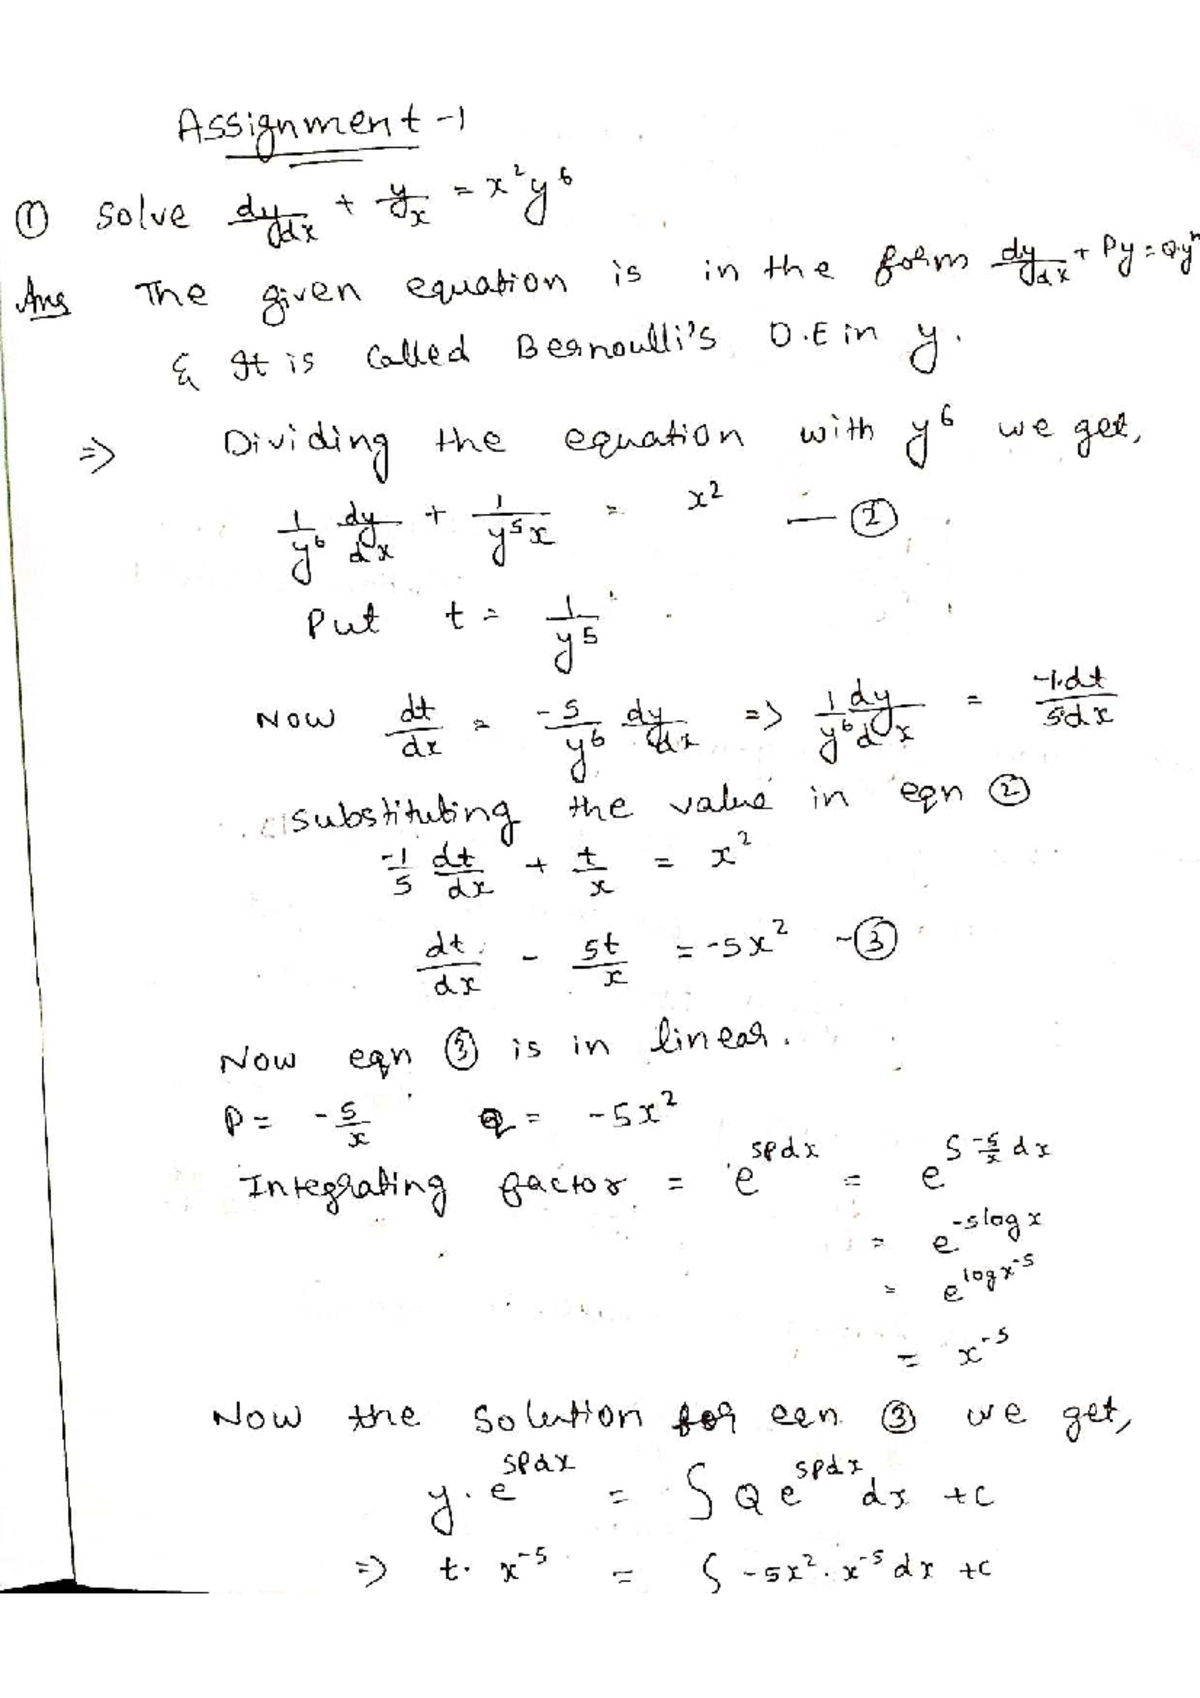 Assignment-1
① Solve dy/dx + y/x = x²y⁶
Ans The given equation is in the form dy/dx + Py = Q.yⁿ
& It is called Bernoulli's D.E in y.
⇒ Dividing the equation with y⁶ we get,
1/y⁶ dy/dx + 1/y⁵x = x² — ②
Put t = 1/y⁵
Now dt/dx = -5/y⁶ dy/dx ⇒ 1/y⁶ dy/dx = -1.dt/5dx
substituting the value in eqn ②
-1/5 dt/dx + t/x = x²
dt/dx - 5t/x = -5x² - ③
Now eqn ③ is in linear.
P = -5/x Q = -5x²
Integrating factor = e^∫Pdx = e^∫-5/x dx
= e^-5logx
= e^logx⁻⁵
= x⁻⁵
Now the solution for een ③ we get,
y.e^∫Pdx = ∫Q e^∫Pdx dx + c
⇒ t. x⁻⁵ = ∫-5x².x⁻⁵ dx + c